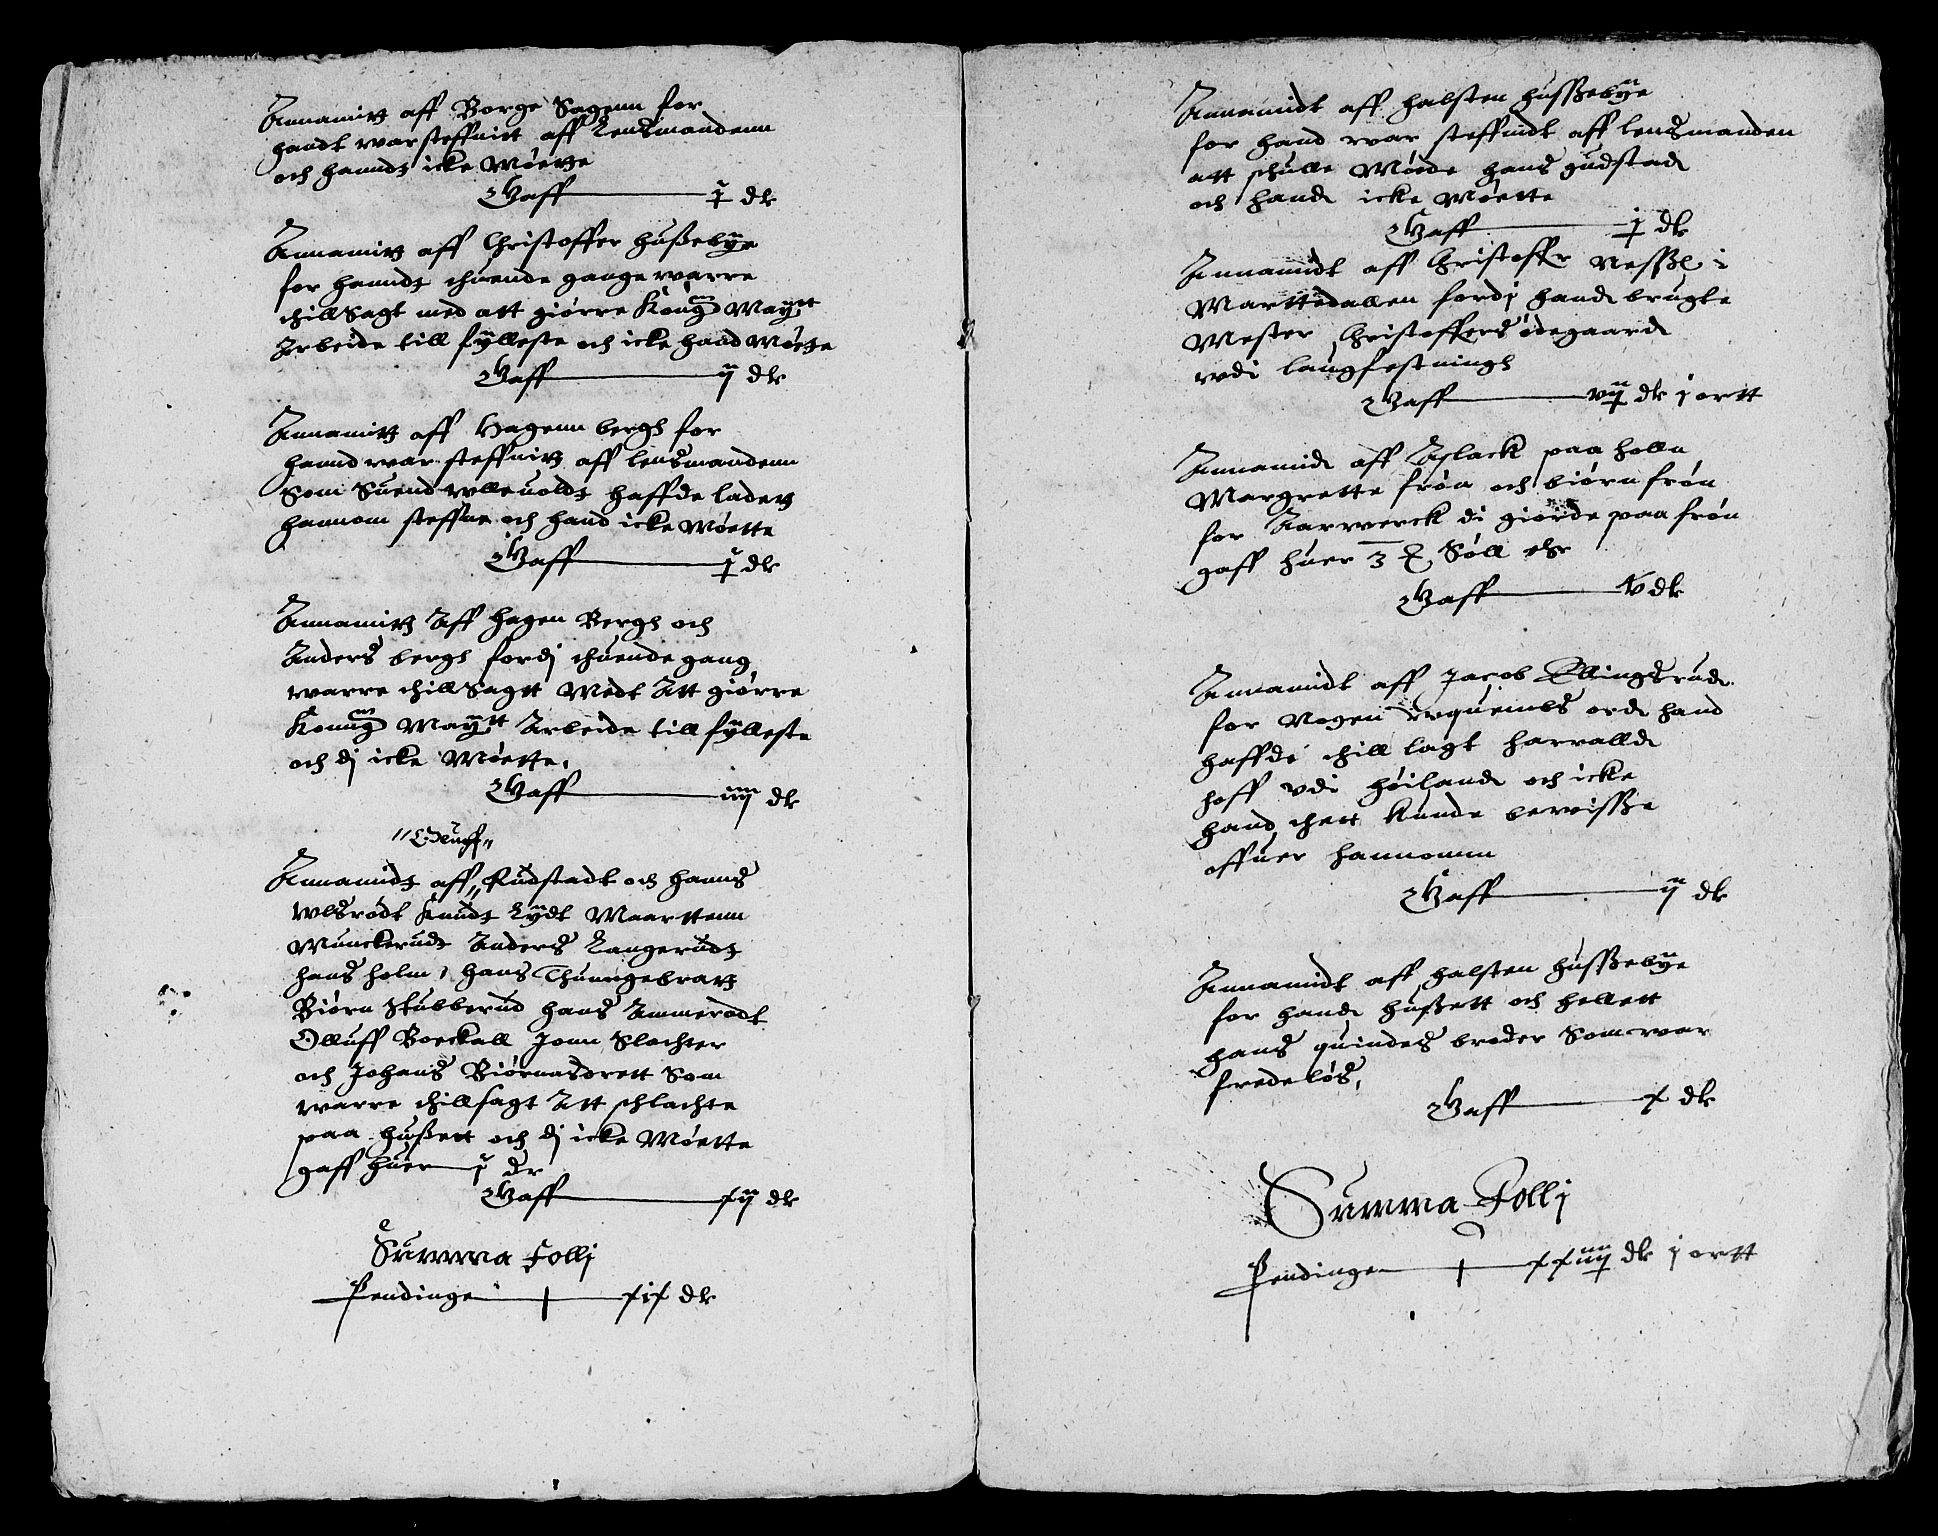 Annamitt aff Borge Sagenn for
handt war steffnitt aff Lensmandenn
och hanndt icke Møette
Gaff — j dlr
Annamitt aff Christoffer Hußebye
for hanndt thuende gange warre
thillsagt med att giørre Kong May:tt
Arbeide till fylleste och icke hand Møette
Gaff — ij dlr
Annamitt aff Hagenn bergh for
hannd war steffnitt aff lensmandenn
Som Suend wlleuoldt haffde ladett
hannom steffne och hand icke Møette
Gaff — j dlr
Annamitt Aff Hagen Bergh och
Anders bergh fordj thuende gang
warre thillsagtt Medt Att giørre
Konng May:tt Arbeide till fylleste
och dj icke Møette.
Gaff — iiij dlr
"Oluff"
Annamidt aff " Rudstadt och Hanns
Wlsrødt Knudt Lydt Maarttenn
Munckerudt Anders Langerudt
hans holm, Hans Thunngebratt
Biørn Stubberud Hans Ammerødt
Olluff Boeckall Jonn Slachter
och Johans Biørnasdrett Som
warre thillsagt Att schlachte
paa Hußett och dj icke Møette
gaff huer — j dr
Gaff — xij dlr
Summa Follj
Pendinge — xix dlr
Annamidt aff Halsten Hussebye
for hand war steffnidt aff lensmanden
att schulle Møede Hans gudstad
och hand icke Møette
Gaff — j dlr
Annamidt aff Christoffer Nessße i
Marttedallen fordj hand brugte
Mester Christoffers ødegaard
wdi laugfestningh
Gaff — vij dlr j ortt
Annamid aff Aslack paa Holln
Margrette frøn och biørn frøn
for Aarwerck di giorde paa frøn
gaff huer 3 Søll
Gaff — xv dlr
Annamidt aff Jacob Ellingsrud
for Nogen wquembs ord hand
haffde thill lagt Harralld
hoff vdi Høiland och icke
hand thett kunde bewisße
offuer hannomm
Gaff — ij dlr
Annamidt aff Halsten Hussebye
for hand Hußett och hellett
hans quindes broder Som war
fredeløs,
Gaff — x dlr
Summa Follj
Pendinge — xxxiiij dlr j ortt